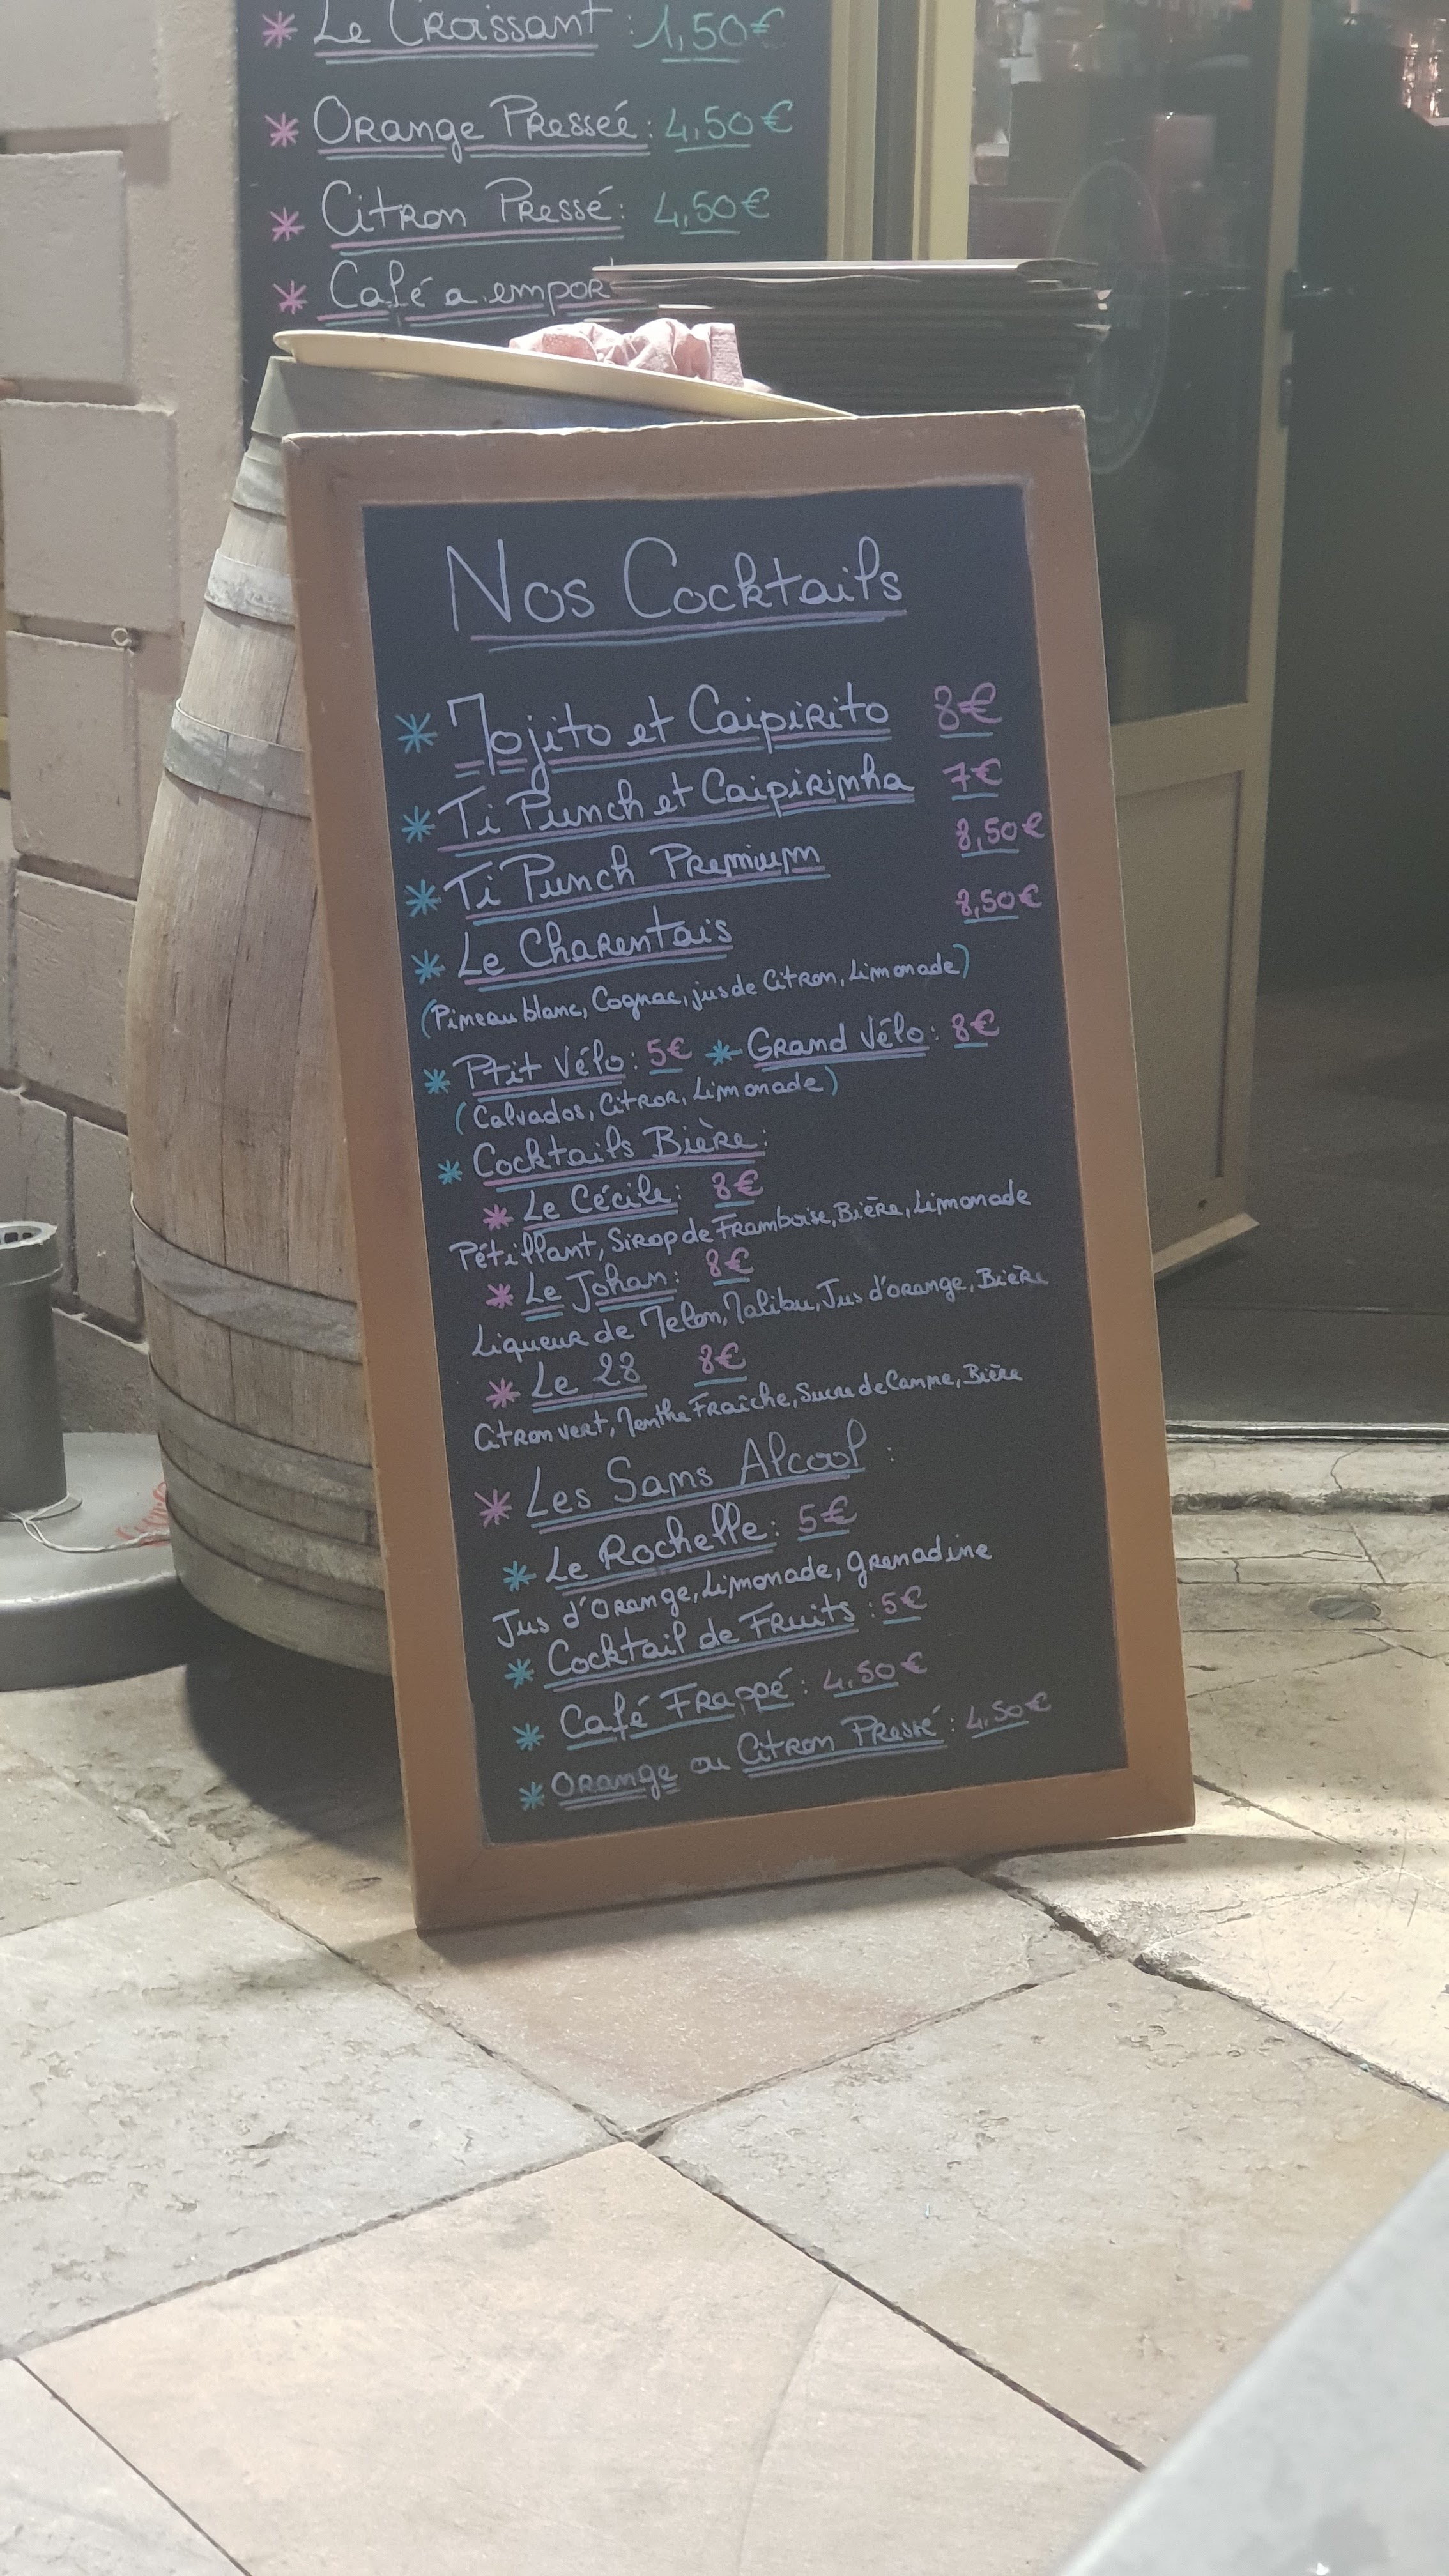 * Le Croissant : 1,50€
* Orange Presseé : 4,50€
* Citron Pressé : 4,50€
* Café a empor
Nos Cocktails
* Mojito et Caipirito 8€
* Ti Punch et Caipirinha 7€
* Ti Punch Premium 8,50€
* Le Charentais 8,50€
(Pineau blanc, Cognac, jus de Citron, Limonade)
* Ptit Vélo : 5€ * Grand Vélo : 8€
(Calvados, Citror, Limonade)
* Cocktails Bière :
* Le Cécile : 8€
Pétillant, Sirop de Framboise, Bière, Limonade
* Le Johan : 8€
Liqueur de Melon, Malibu, Jus d'orange, Bière
* Le 28 8€
Citron vert, Menthe Fraîche, Sucre de Canne, Bière
* Les Sans Alcool :
* Le Rochelle : 5€
Jus d'Orange, Limonade, grenadine
* Cocktail de Fruits : 5€
* Café Frappé : 4,50€
* Orange ou Citron Pressé : 4,50€